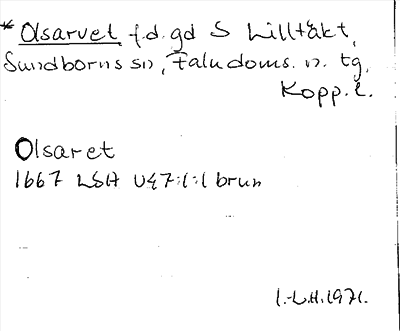 * Olsarvet f.d. gd S Lilltäkt,
Sundborns sn, Falu doms. n. tg,
Kopp. l.
Olsaret
1667 LSA U47:1:1 brun
I.-L.H. 1971.